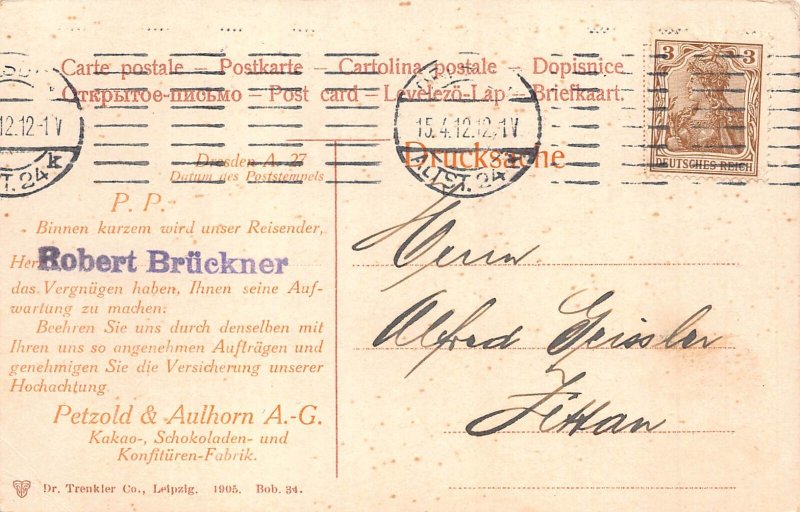 Carte postale – Postkarte – Cartolina postale – Dopisnice
Открытое-письмо – Post card – Levelező-Lap – Briefkaart.
12.12-1V
ST. 24 k
15.4.12.12-1V
ALTST. 24
3 3
DEUTSCHES REICH
Drucksache
Dresden-A. 27
Datum des Poststempels
P. P.
Binnen kurzem wird unser Reisender,
Herr
Robert Brückner
das Vergnügen haben, Ihnen seine Auf-
wartung zu machen.
Beehren Sie uns durch denselben mit
Ihren uns so angenehmen Aufträgen und
genehmigen Sie die Versicherung unserer
Hochachtung.
Petzold & Aulhorn A.-G.
Kakao-, Schokoladen- und
Konfitüren-Fabrik.
Dr. Trenkler Co., Leipzig. 1905. Bob. 34.
Herrn
Alfred Geissler
Zittau